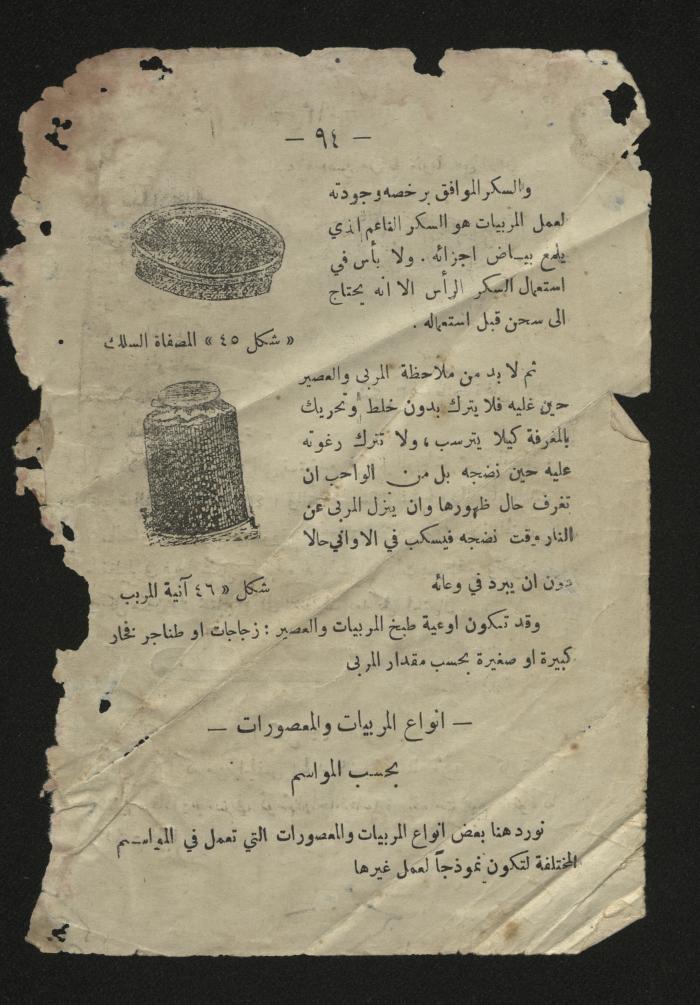 — ٩٤ —
والسكر الموافق برخصه وجودته
لعمل المربيات هو السكر الناعم الذي
يلمع بيـاض اجزائه . ولا بأس في
استعمال السكر الرأس الا انه يحتاج
الى سحن قبل استعماله .
« شكل ٤٥ » المصفاة السلك
ثم لا بد من ملاحظة المربى والعصير
حين غليه فلا يترك بدون خلط وتحريك
بالمغرفة كيلا يترسب ، ولا تترك رغوته
عليه حين نضجه بل من الواجب ان
تغرف حال ظهورها وان ينزل المربى عن
النار وقت نضجه فيسكب في الاواني حالا
دون ان يبرد في وعائه
شكل « ٤٦ آنية المربب
وقد تتكون اوعية طبخ المربيات والعصير : زجاجات او طناجر فخار
كبيرة او صغيرة بحسب مقدار المربى
— انواع المربيات والمعصورات —
بحسب المواسم
نورد هنا بعض انواع المربيات والمعصورات التي تعمل في المواسـم
المختلفة لتكون نموذجاً لعمل غيرها